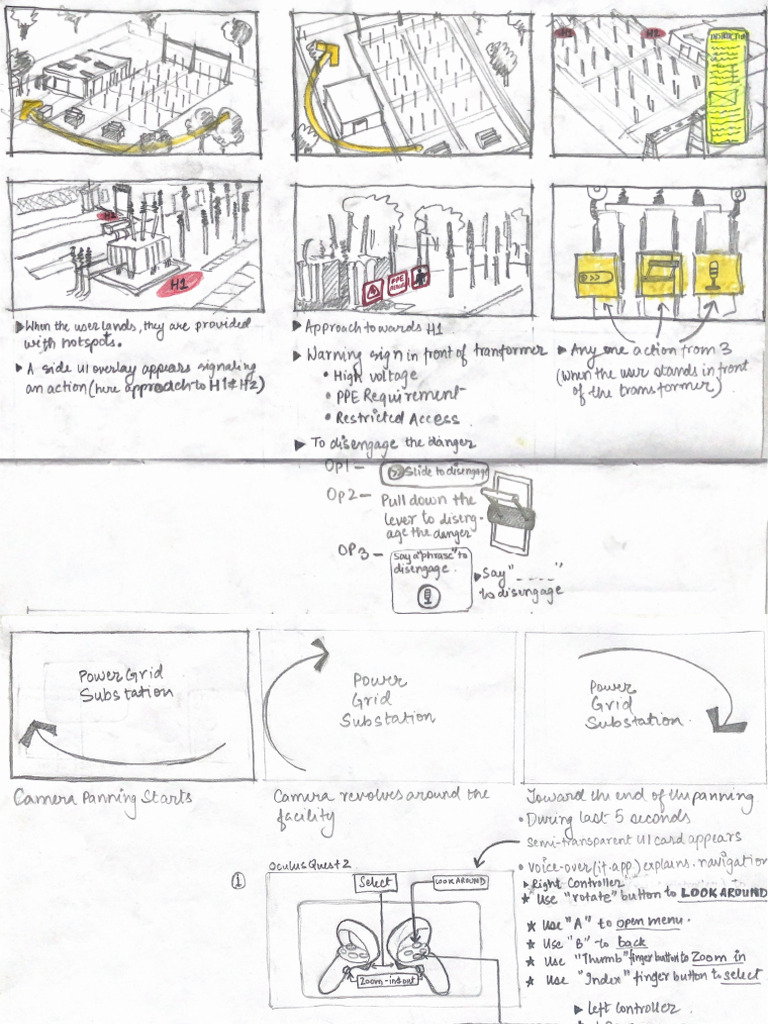 H1
H2
INSTRUCTION
H2
H1
PPE
▶ When the user lands, they are provided
with hotspots.
▶ A side UI overlay appears signaling
an action (here approach to H1 & H2)
▶ Approach towards H1
▶ Warning sign in front of tranformer
• High voltage
• PPE Requirement
• Restricted Access
▶ To disengage the danger
▶ Any one action from 3
(when the user stands in front
of the transformer)
OP1 –
Slide to disengage
OP2 –
Pull down the
lever to diseng-
age the danger
OP3 –
Say a "phrase" to
disengage.
▶ Say "----"
to disengage
Power Grid
Substation
Power
Grid
Substation
Power
Grid
Substation.
Camera Panning Starts
Camera revolves around the
facility
Toward the end of the panning
• During last 5 seconds
semi-transparent UI card appears
• Voice-over (it.app) explains navigation
▶ Right Controller
★ Use "rotate" button to LOOK AROUND
★ Use "A" to open menu.
★ Use "B" to back
★ Use "Thumb" finger button to Zoom in
★ Use "Index" finger button to select
▶ left Controller.
1
Oculus Quest 2
Select
LOOK AROUND
Zoom-in out